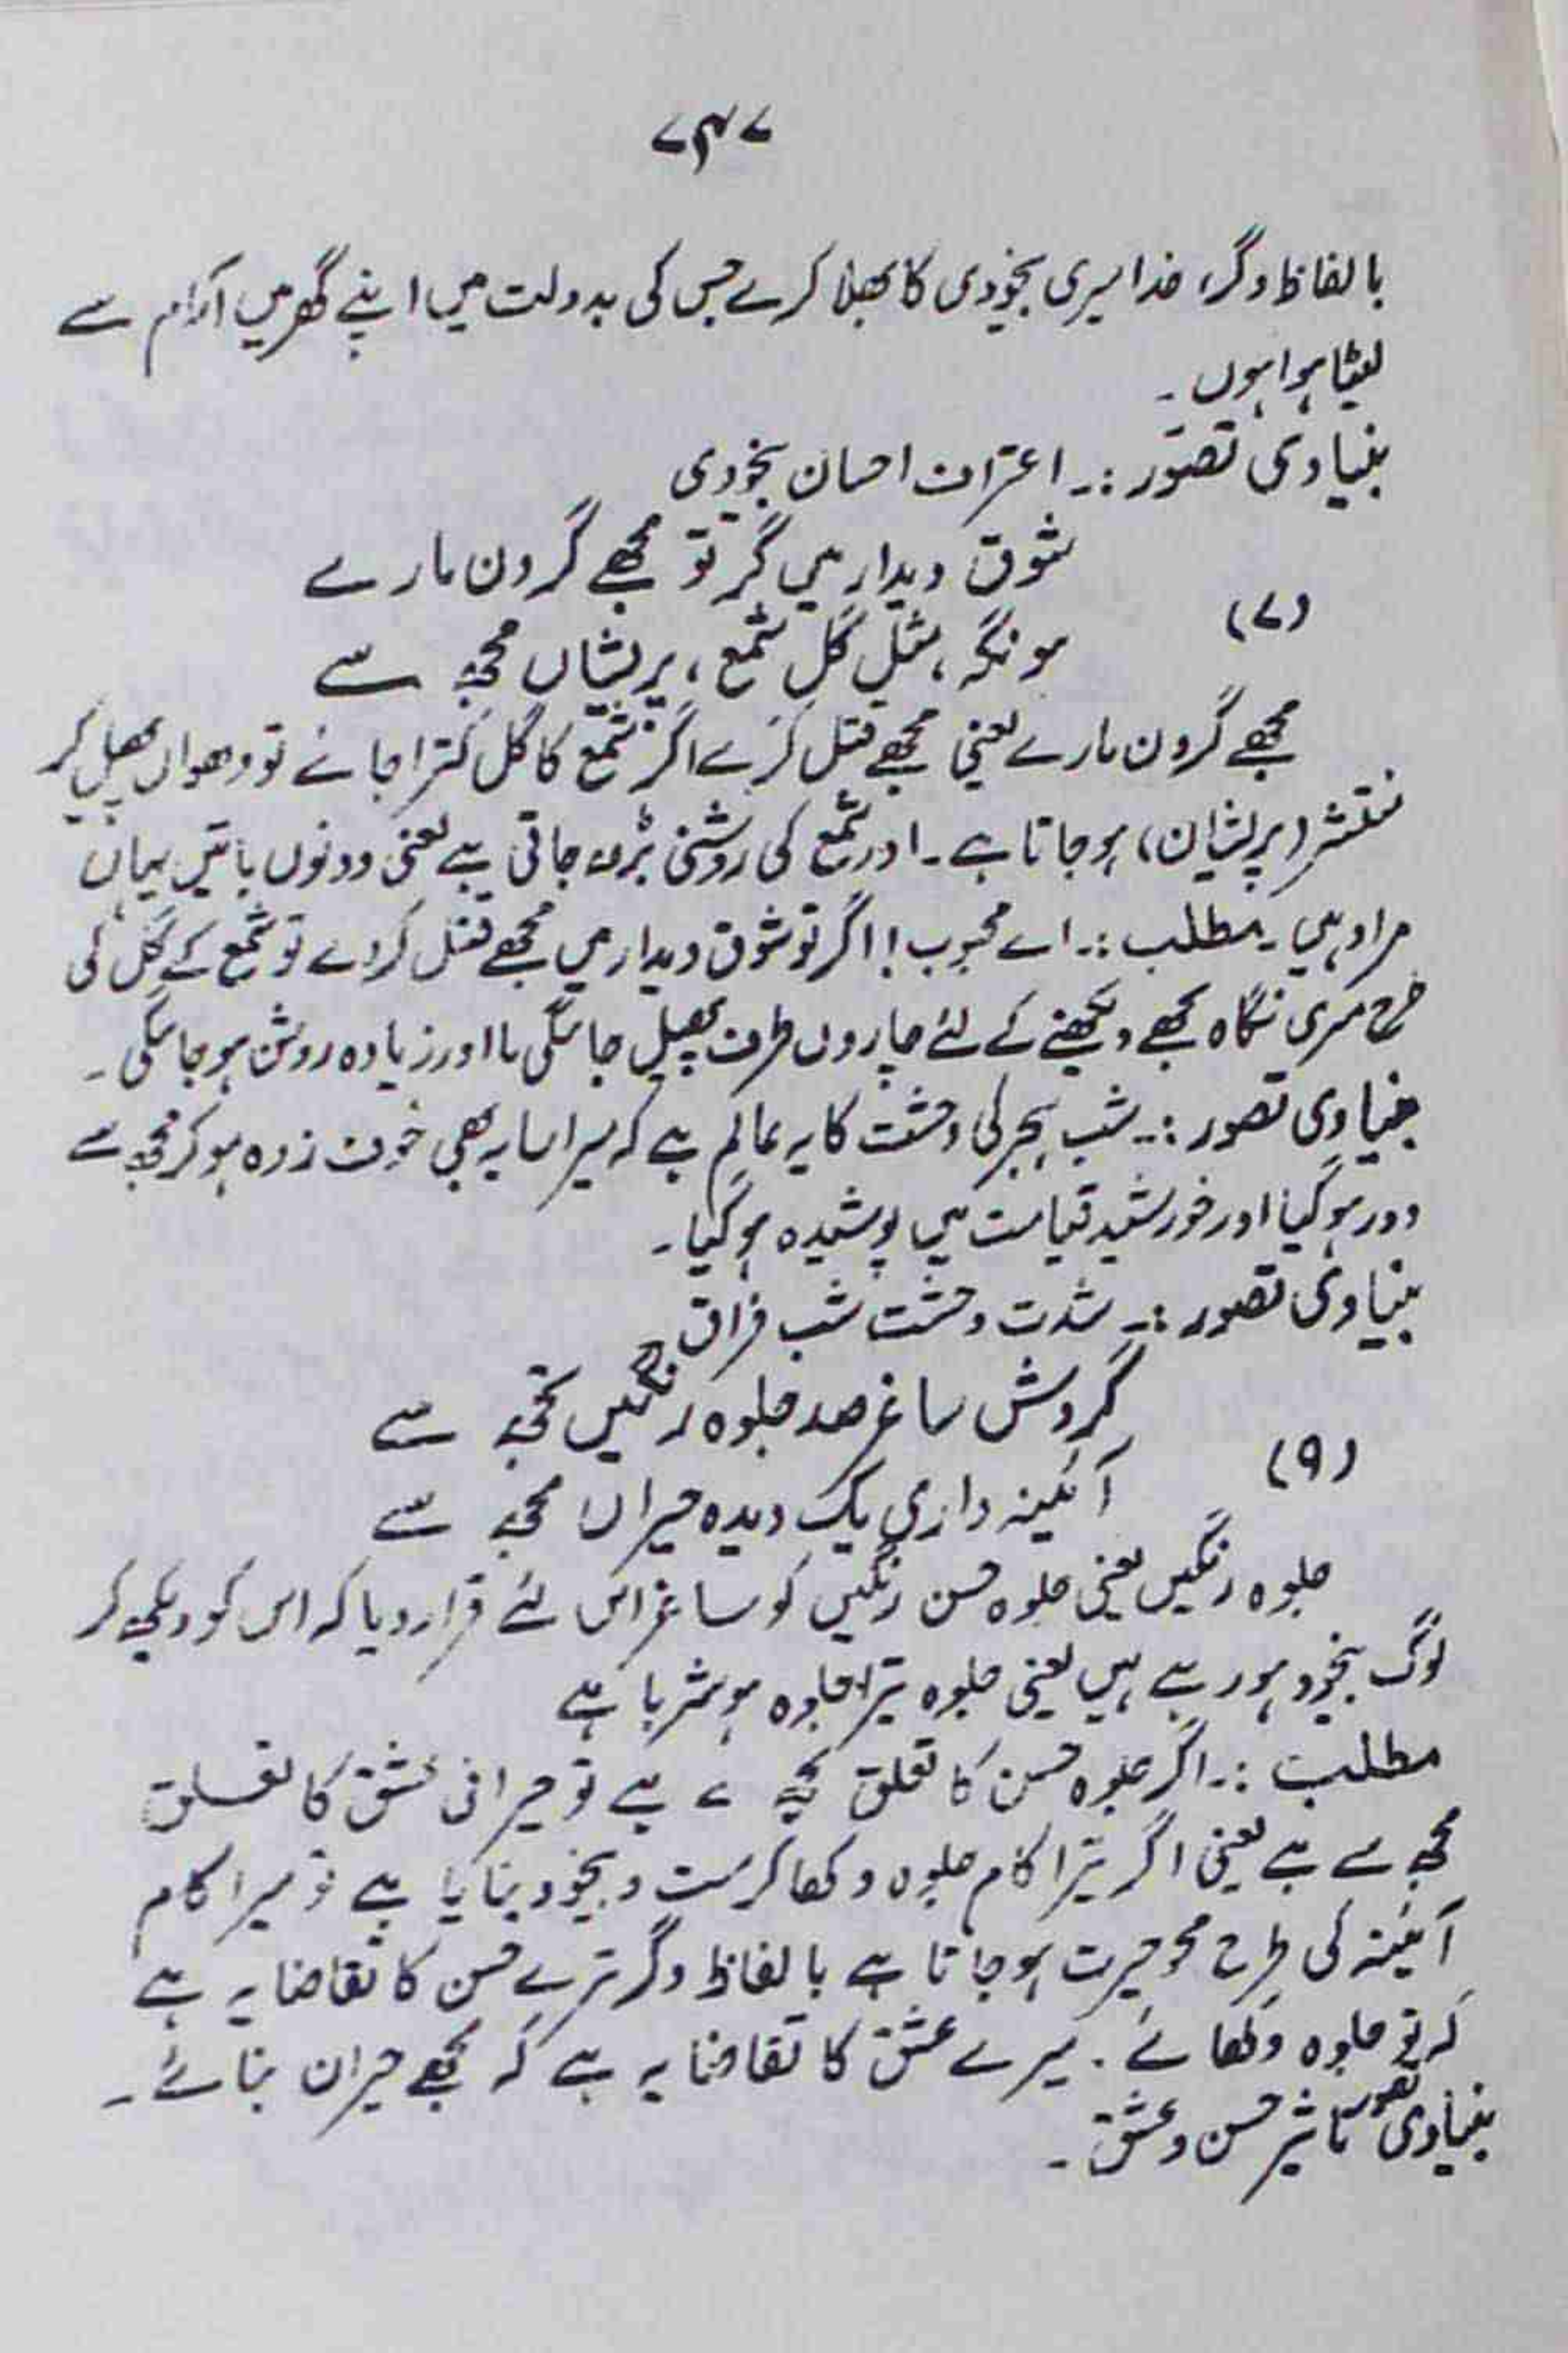 ۷۴۷
بالفاظ دگر، خدا میری بیخودی کا بھلا کرے جس کی بدولت میں اپنے گھر میں آرام سے
لیٹا ہوا ہوں ۔
بنیادی تصّور :۔ اعتراف احسان بیخودی
شوق دیدار میں گر تو مجھے گردن مارے
(۷)
ہو نگہ، مثلِ گلِ شمع، پریشاں مجھ سے
مجھے گردن مارے یعنی مجھے قتل کرے اگر شمع کا گل کترا جائے تو دھواں پھیل کر
منتشر (پریشان) ہو جاتا ہے ۔ اور شمع کی روشنی بڑھ جاتی ہے یعنی دونوں باتیں یہاں
مراد ہیں ۔ مطلب :۔ اے محبوب! اگر تو شوق دیدار میں مجھے قتل کر دے تو شمع کے گل کی
طرح میری نگاہ تجھے دیکھنے کے لئے چاروں طرف پھیل جائیگی یا اور زیادہ روشن ہو جائیگی ۔
بنیادی تصور :۔ شب ہجر کی وحشت کا یہ عالم ہے کہ میرا سایہ بھی خوف زدہ ہو کر مجھ سے
دور ہو گیا اور خورشید قیامت میں پوشیدہ ہو گیا ۔
بنیادی تصور :۔ شدت وحشت شب فراق
گردش ساغر صد جلوہ رنگیں تجھ سے
(۹)
آئینہ داریِ یک دیدہ حیراں مجھ سے
جلوہ رنگیں یعنی جلوہ حسن رنگیں کو ساغر اس لئے قرار دیا کہ اس کو دیکھ کر
لوگ بیخود ہو رہے ہیں یعنی جلوہ تیرا جلوہ ہوشربا ہے
مطلب :۔ اگر جلوہ حسن کا تعلق تجھ سے ہے تو حیرانی عشق کا تعلق
مجھ سے ہے یعنی اگر تیرا کام جلوہ دکھا کر مست و بیخود بنایا ہے تو میرا کام
آئینہ کی طرح محو حیرت ہو جانا ہے بالفاظ دگر ترے حسن کا تقاضا یہ ہے
کہ تو جلوہ دکھائے . میرے عشق کا تقاضا یہ ہے کہ مجھے حیران بنائے ۔
بنیادی تصور تاثیر حسن و عشق ۔